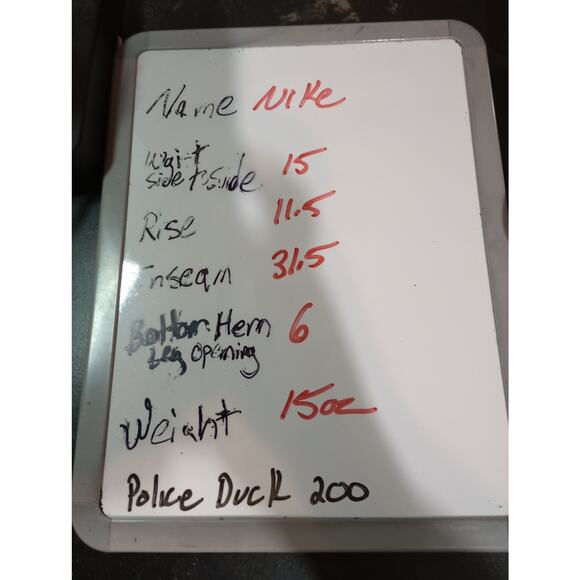 Name Nike
Waist
side to side 15
Rise 11.5
Inseam 31.5
Bottom Hem 6
Leg Opening
Weight 15oz
Police Duck 200